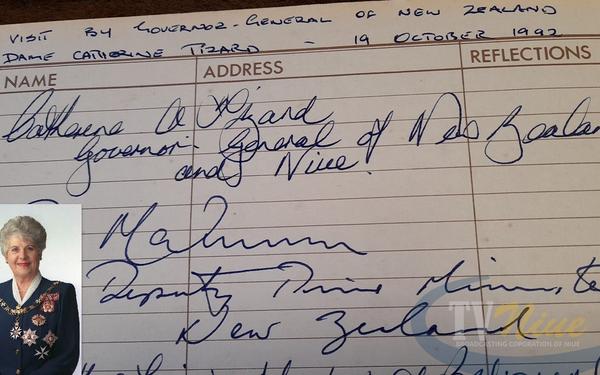 VISIT BY GOVERNOR-GENERAL OF NEW ZEALAND
DAME CATHERINE TIZARD - 19 OCTOBER 1992
NAME ADDRESS REFLECTIONS
Catherine A Tizard
Governor General of New Zealan
and Niue.
Deputy Prime Ministe
New Zealand
TV Niue
BROADCASTING CORPORATION OF NIUE